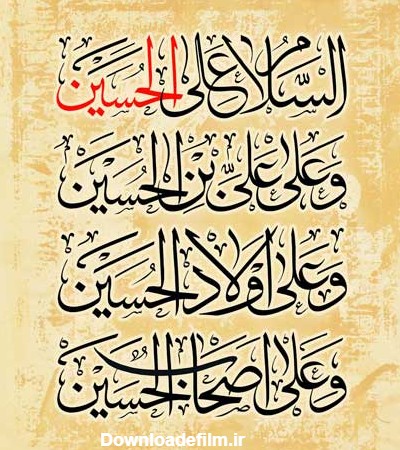 السَّلامُ عَلَی الحُسَین
وَ عَلی عَلیِّ بنِ الحُسَین
وَ عَلی اَولادِ الحُسَین
وَ عَلی اَصحابِ الحُسَین
Downloadefilm.ir